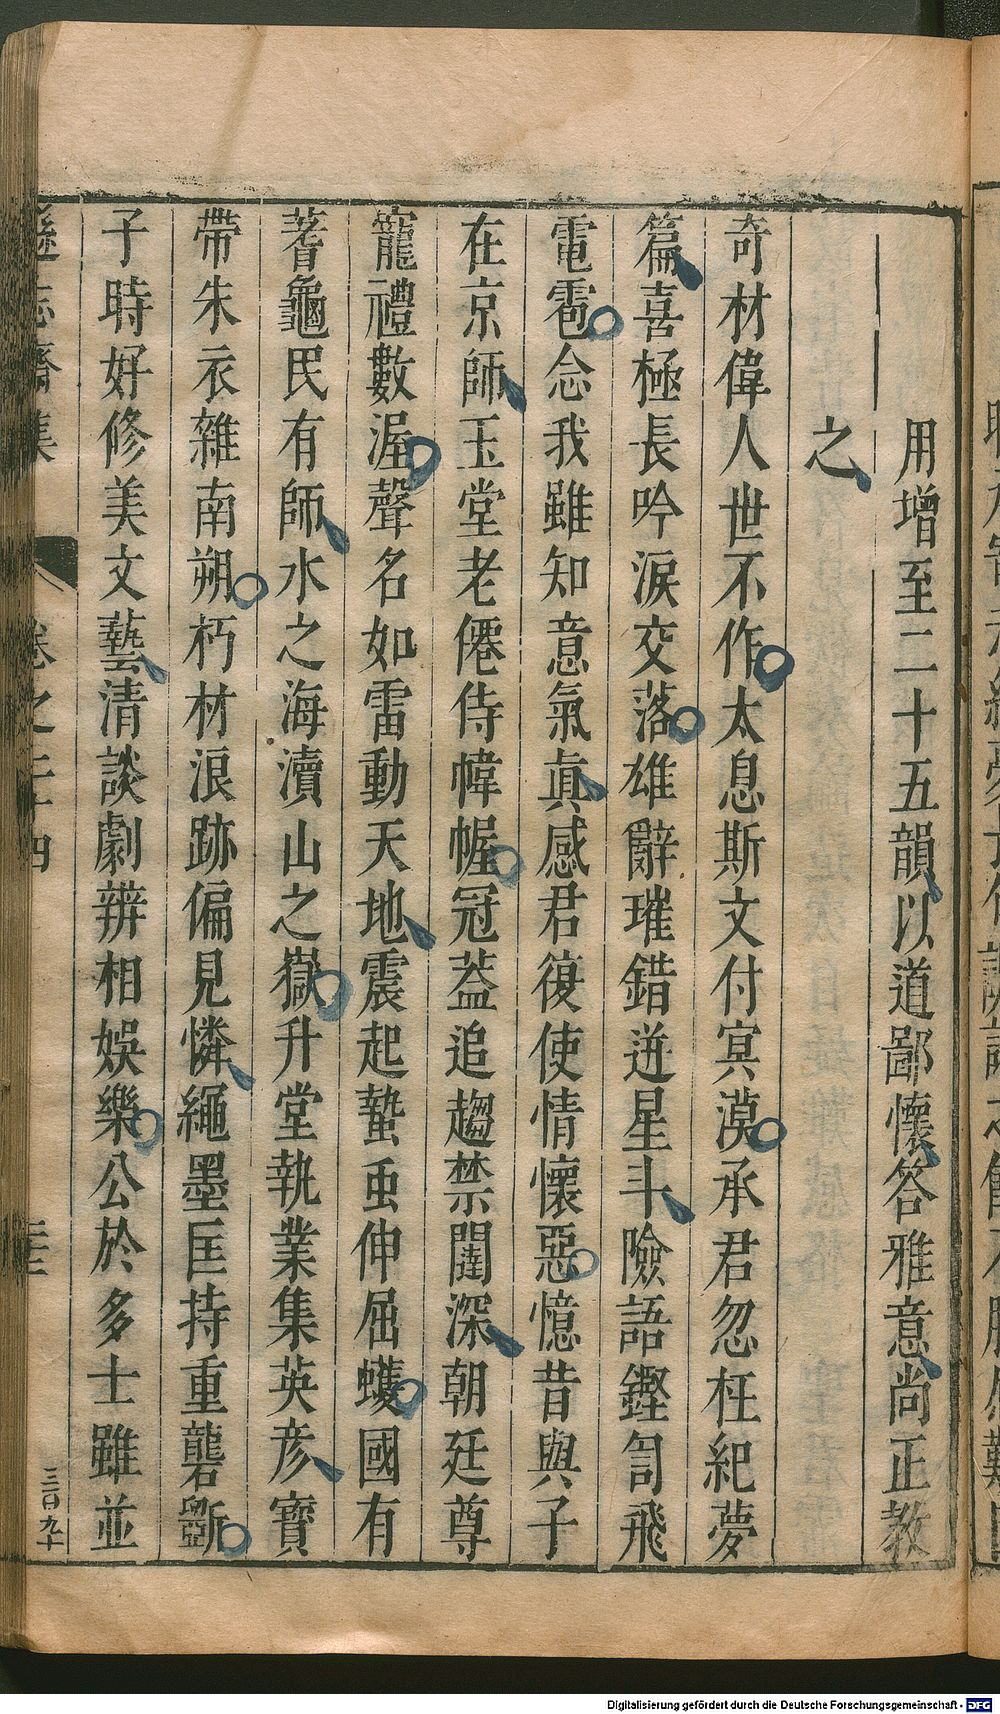 用增至二十五韻以道鄙懷答雅意尚正教
之
奇材偉人世不作太息斯文付寞漠承君忽枉紀夢
篇喜極長吟淚交落雄辭璀錯迸星斗險語鏗訇飛
電雹念我雖知意氣眞感君復使情懷惡憶昔與子
在京師玉堂老僊侍幃幄冠葢追趨禁闥深朝廷尊
寵禮數渥聲名如雷動天地震起蟄虫伸屈蠖國有
蓍龜民有師水之海瀆山之嶽升堂執業集英彦寳
帶朱衣雜南朔朽材浪跡偏見憐繩墨匡持重礱斵
子時好修美文藝清談劇辨相娛樂公於多士雖並
遜志齋集
卷之二十四
三十
三百九十
Digitalisierung gefördert durch die Deutsche Forschungsgemeinschaft - DFG